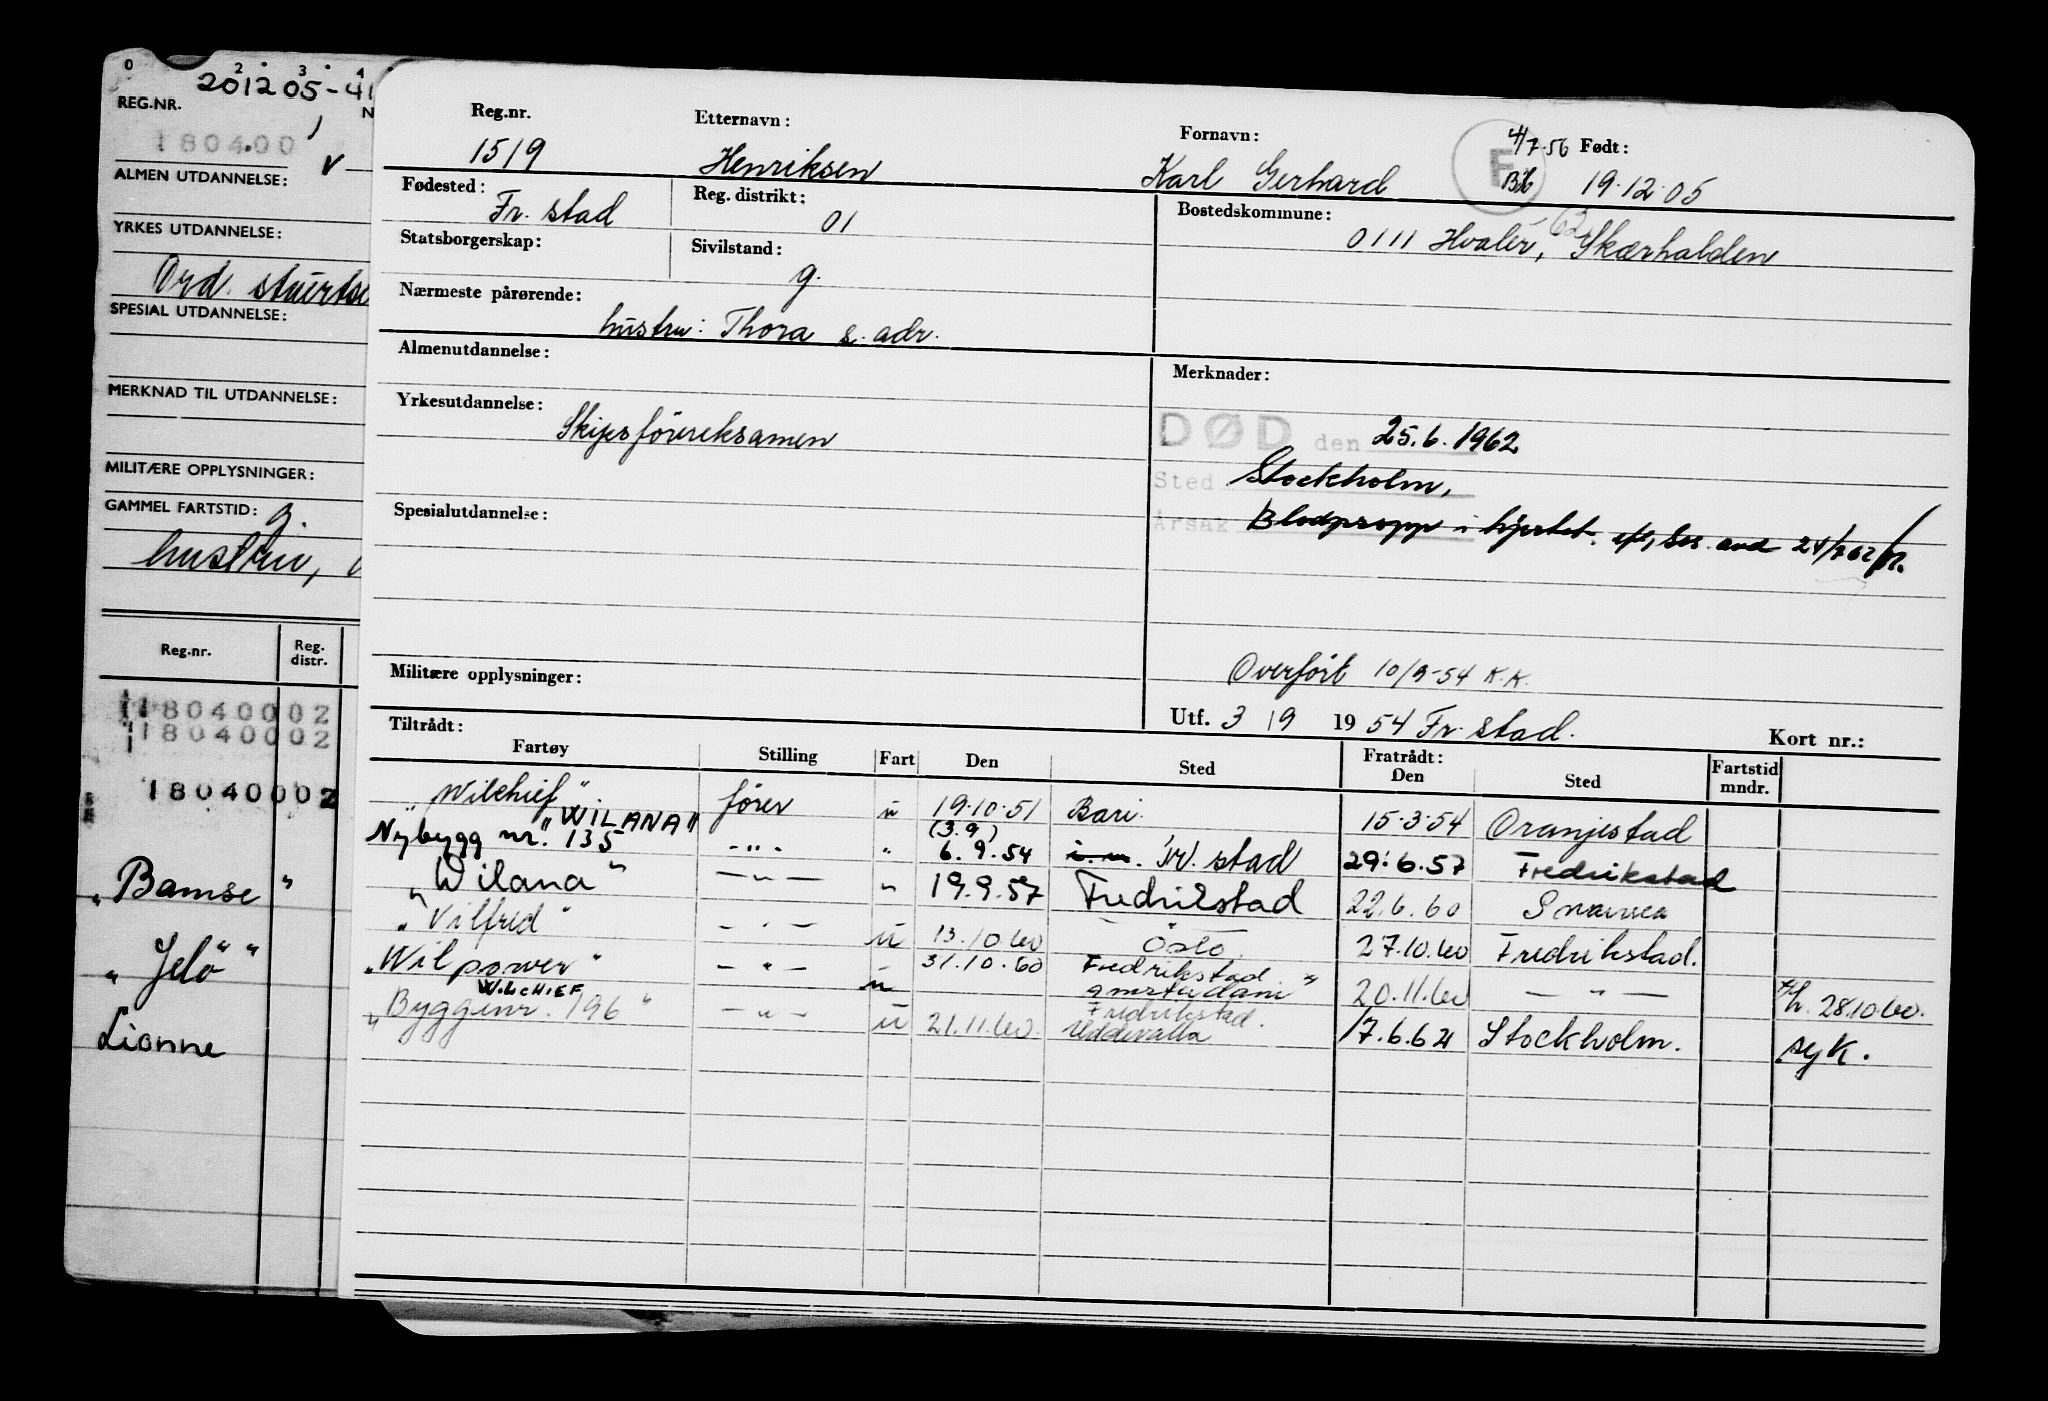 0 2 3 4
201205-41
REG.NR. N
180400
v
ALMEN UTDANNELSE:
YRKES UTDANNELSE:
Ord. stuertsk
SPESIAL UTDANNELSE:
MERKNAD TIL UTDANNELSE:
MILITÆRE OPPLYSNINGER:
GAMMEL FARTSTID: g.
hustru,
Reg.nr. Reg. distr.
18040002
18040002
18040002
"Bamse"
"Jelø"
Lionne
Reg.nr. Etternavn: Fornavn: 4/7.56 Født:
1519 Henriksen Karl Gerhard F 19.12.05
Fødested: Reg. distrikt: Bostedskommune:
Fr. stad 01 0111 Hvaler, -63 Skærhalden
Statsborgerskap: Sivilstand:
g.
Nærmeste pårørende:
hustru: Thora s. adr.
Almenutdannelse: Merknader:
Yrkesutdannelse:
Skipsførereksamen
DØD den 25.6.1962
Sted Stockholm,
Spesialutdannelse:
Årsak Blodpropp i hjertet.
Militære opplysninger:
Overført 10/9-54 K.K.
Utf. 3/9 1954 Fr. stad. Kort nr.:
Tiltrådt: Fratrådt:
Fartøy Stilling Fart Den Sted Den Sted Fartstid mndr.
"Wilchief" fører u 19.10.51 Bari 15.3.54 Oranjestad
"WILANA" (3.9)
Nybygg nr. 135 -"- " 6.9.54 Fr. stad 29.6.57 Fredrikstad
"Wilana" -"- " 19.9.57 Fredrikstad 22.6.60
"Vilfred" -"- u 13.10.60 Oslo 27.10.60 Fredrikstad.
"Wilpower" -"- u 31.10.60 Fredrikstad Amsterdam 20.11.60 -"- 28.10.60.
WILCHIEF
"Byggenr. 196" -"- u 21.11.60. Fredrikstad. Uddevalla 17.6.62 Stockholm. syk.